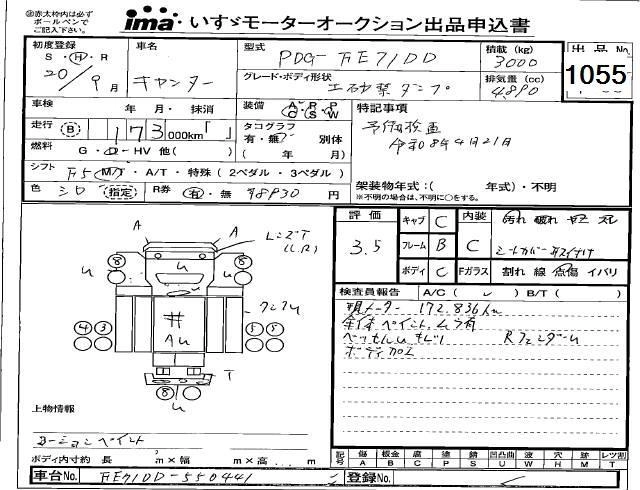 ◎赤太枠内は必ず
ボールペンで
ご記入下さい。
ima いすゞモーターオークション出品申込書
初度登録
S・H・R
20/9月
車名
キャンター
型式
PDG-FE71DD
積載 (kg)
3000
グレード・ボディ形状
土砂禁ダンプ
排気量 (cc)
4890
出品No.
1055
車検
年 月・ 抹消
装備
A・P・P
C S W
走行 B 173,000km「 」
タコグラフ
有・無 別体
( 年 月)
燃料
G・D・HV 他( )
シフト F5 M/T・A/T・特殊 (2ペダル・3ペダル)
色 シロ (指定) R券 有・無 ¥8930 円
特記事項
予備検査
令和8年4月21日
架装物年式:( 年式)・不明
※不明の場合は、不明に○をする。
評価
3.5
キャブ C
フレーム B
ボディ C
内装
C
Fガラス
汚れ 破れ コゲ スレ
シートカバー
割れ 線 点傷 イバリ
検査員報告 A/C( ) B/T( )
現メーター 172,836km
全体ペイント、ムラ有
Rフェンダーu
A
A
L=コゲT
(L.R)
8
8
u
u
u
4 3
5 5
#
Au
T
8
u
上物情報
ローションペイント
ボディ内寸約 長 m×幅 m×高… m
記号
傷 A
板金 B
腐 C
塗 P
錆 S
凹凸曲 U
波 W
穴 H
跡 M
レツ割 T
車台No. FE71DD-550441
登録No.